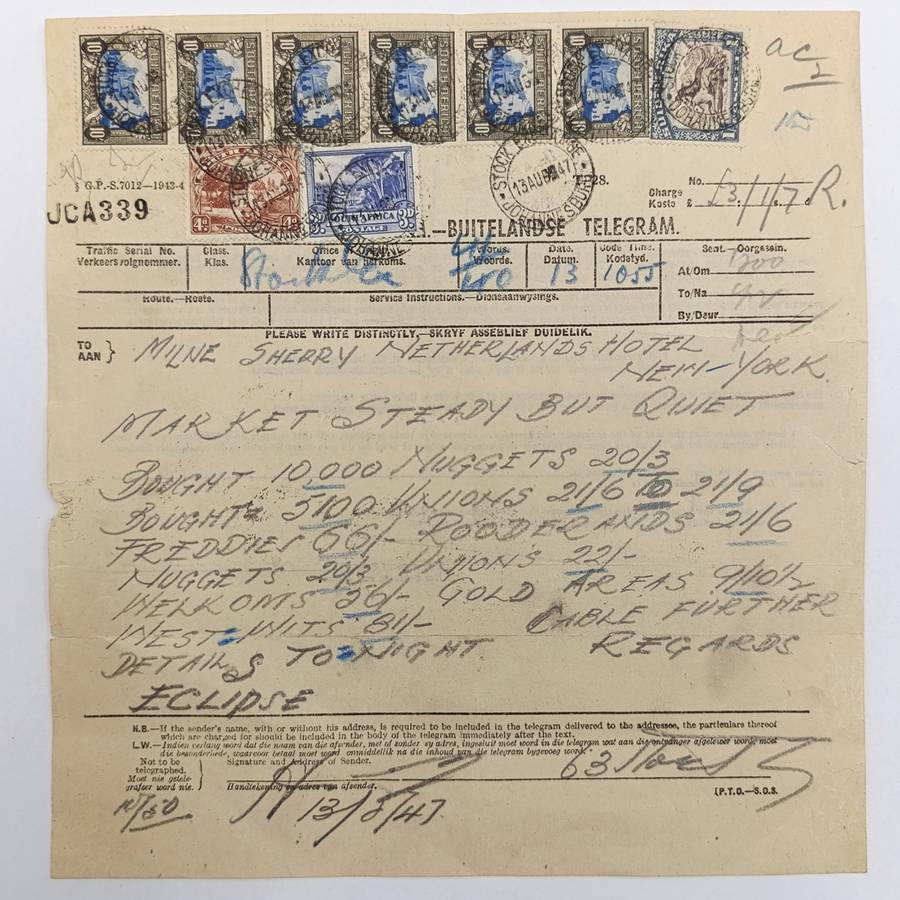 G.P.-S.7012—1943-4
T/28.
No.
Charge
Koste £ £3/1/7 R.
JCA339
—BUITELANDSE TELEGRAM.
Traffic Serial No. Class. Office Words. Date. Code Time. Sent.—Oorgesein.
Verkeersvolgnommer. Klas. Kantoor van herkoms. Woorde. Datum. Kodetyd.
40 13 1055
At/Om
To/Na
By/Deur
Route.—Roete. Service Instructions.—Diensaanwysings.
PLEASE WRITE DISTINCTLY.—SKRYF ASSEBLIEF DUIDELIK.
TO
AAN } MILNE SHERRY NETHERLANDS HOTEL
NEW-YORK.
MARKET STEADY BUT QUIET
BOUGHT 10,000 NUGGETS 20/3
BOUGHT 5100 UNIONS 21/6 TO 21/9
FREDDIES 66/- ROODERANDS 21/6
NUGGETS 20/3 UNIONS 22/-
WELKOMS 26/- GOLD AREAS 9/10½
WEST WITS 81/- CABLE FURTHER
DETAILS TO-NIGHT REGARDS
ECLIPSE
N.B.—If the sender's name, with or without his address, is required to be included in the telegram delivered to the addressee, the particulars thereof
which are charged for should be included in the body of the telegram immediately after the text.
L.W.—Indien verlang word dat die naam van die afsender, met of sonder sy adres, ingesluit moet word in die telegram wat aan die ontvanger afgelewer word, moet
die besonderhede, waarvoor betaal moet word onmiddellik na die inhoud van die telegram bygevoeg word.
Not to be
telegraphed.
Moet nie getele-
grafeer word nie.
Signature and Address of Sender.
Handtekening en adres van afsender.
13/8/47.
(P.T.O.—S.O.S.